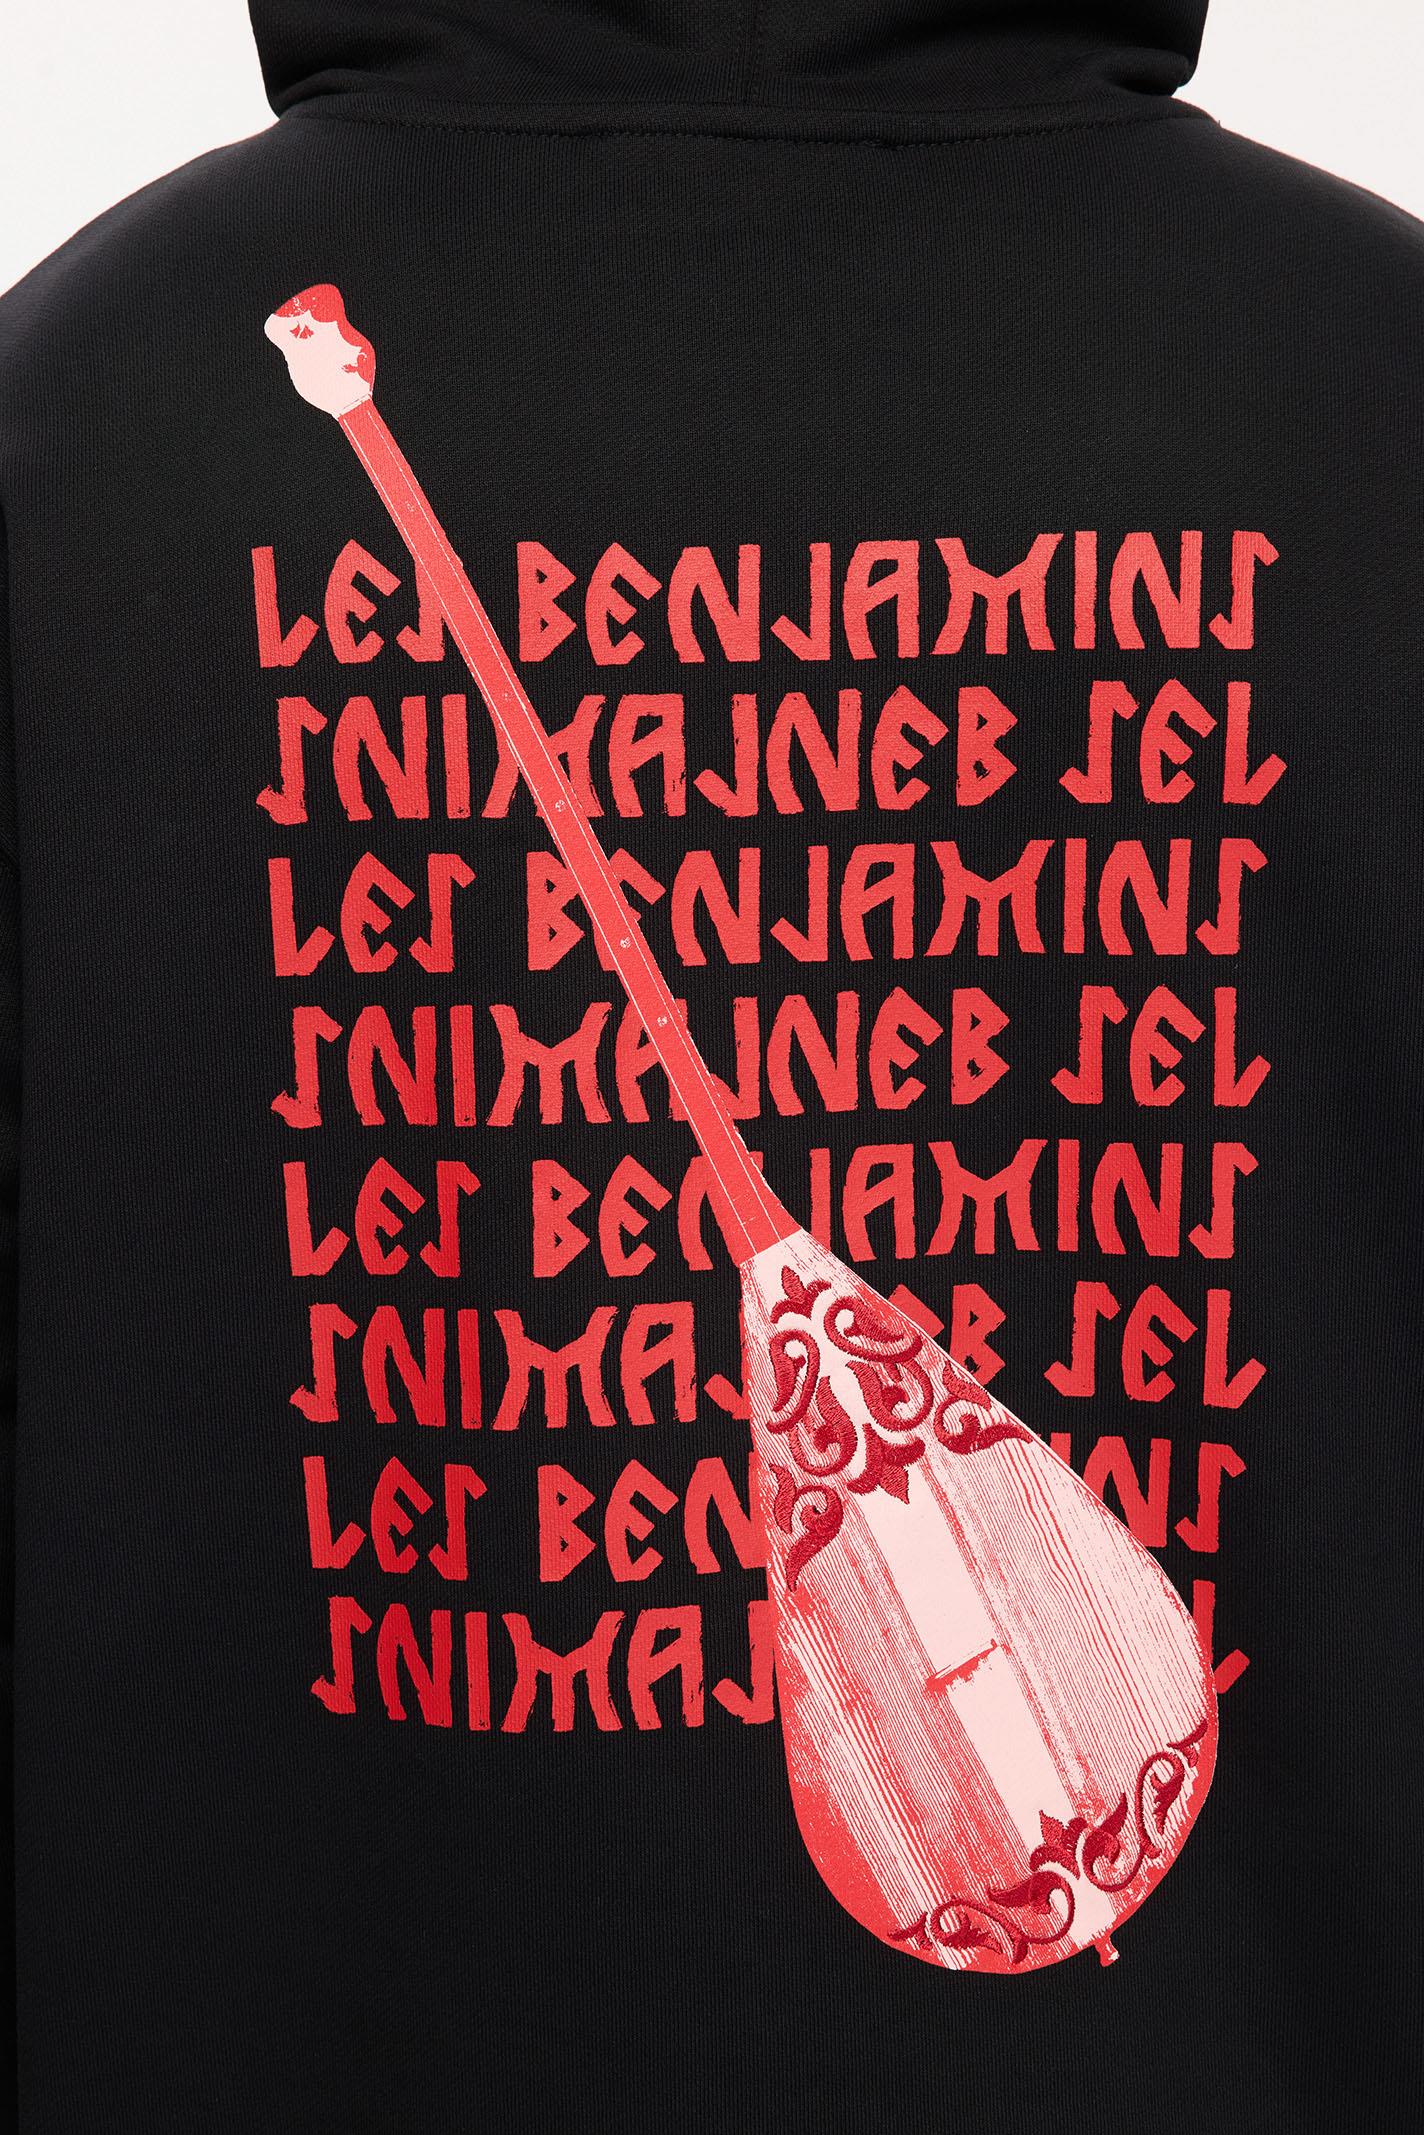 LES BENJAMINS
SNIMAJNEB SEL
LES BENJAMINS
SNIMAJNEB SEL
LES BENJAMINS
SNIMAJNEB SEL
LES BENJAMINS
SNIMAJ